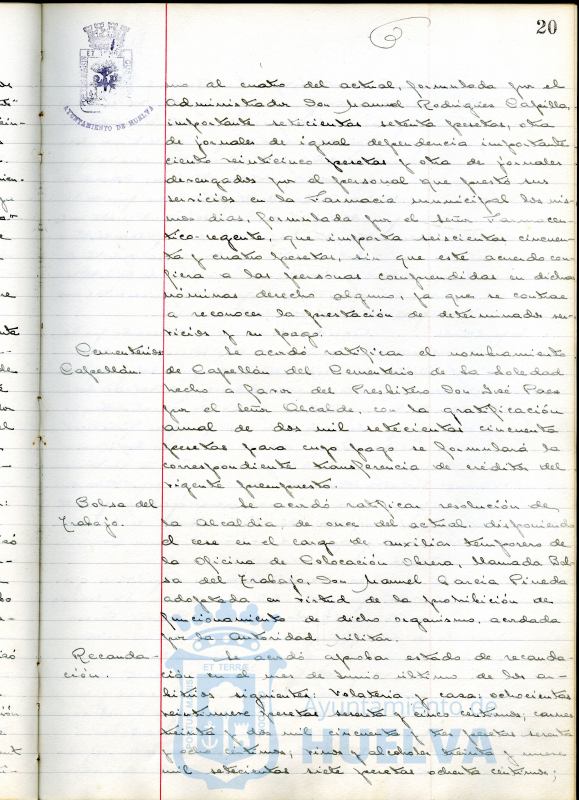 20
AYUNTAMIENTO DE HUELVA
mo al cuatro del actual, formulada por el
Administrador Don Manuel Rodriguez Capilla,
importante setecientas setenta pesetas, otra
de jornales de igual dependencia importante
ciento veinticinco pesetas y otra de jornales
devengados por el personal que prestó sus
servicios en la Farmacia municipal los mis-
mos dias, formulada por el Señor Farmaceu-
tico-regente, que importa seiscientas cincuen-
ta y cuatro pesetas, sin que este acuerdo con-
fiera a las personas comprendidas en dichas
nóminas derecho alguno, ya que se contrae
a reconocer la prestación de determinados ser-
vicios y su pago.
Cementerios
Capellán.
Se acordó ratificar el nombramiento
de Capellán del Cementerio de la Soledad
hecho a favor del Presbitero Don José Paes
por el Señor Alcalde, con la gratificación
anual de dos mil setecientas cincuenta
pesetas para cuyo pago se formulará la
correspondiente transferencia de créditos del
vigente presupuesto.
Bolsa del
Trabajo.
Se acordó ratificar resolución de
la Alcaldia, de once del actual, disponiendo
el cese en el cargo de auxiliar temporero de
la Oficina de Colocación Obrera, llamada Bol-
sa del Trabajo, Don Manuel Garcia Pineda
adoptada en virtud de la prohibición de
funcionamiento de dicho organismo, acordada
por la autoridad militar.
Recauda-
ción.
Se acordó aprobar estado de recauda-
ción en el mes de Junio último de los ar-
bitrios siguientes: Volateria y caza, ochocientas
veintinueve pesetas setenta y cinco centimos; carnes
treinta y dos mil cincuenta y tres pesetas setenta
y ocho centimos; vinos y alcoholes treinta y nueve
mil setecientas siete pesetas ochenta centimos;
Ayuntamiento de
HUELVA